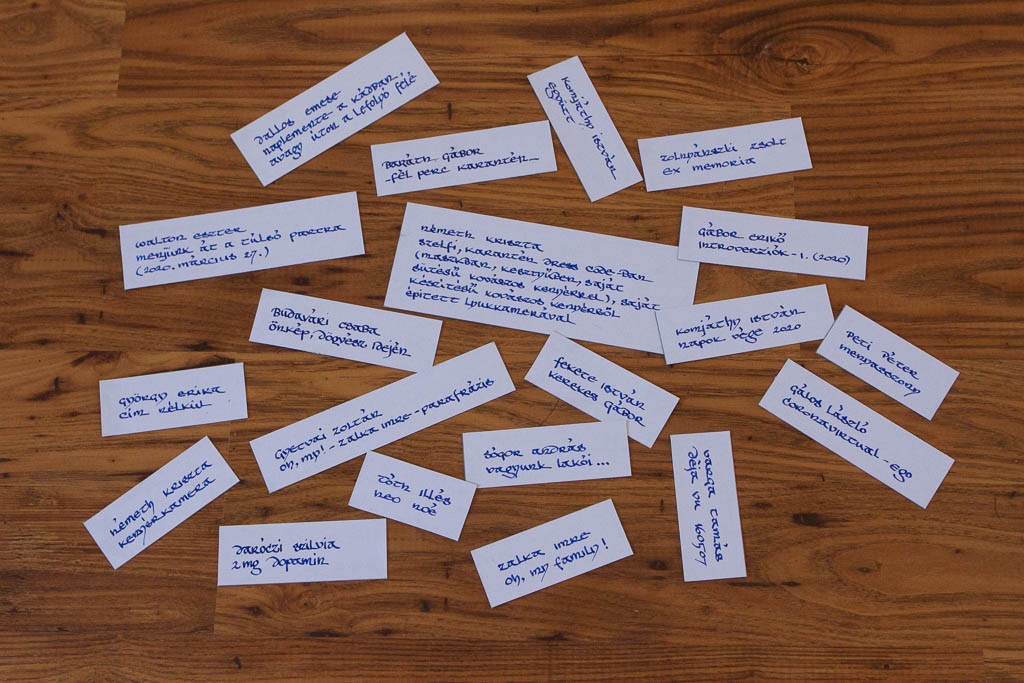 dallos emese
naplemente a kádban,
avagy úton a lefolyó felé
baráth gábor
-fél perc karantén-
konyáthy istván
együtt
zolnyánszki zsolt
ex memoria
walton eszter
menjünk át a túlsó partra
(2020. március 27.)
németh kriszta
szelfi, karantén dress code-ban
(maszkban, kesztyűben, saját
sütésű kovászos kenyérrel), saját
készítésű kovászos kenyérből
épített lyukkamerával
gábor enikő
introverziók - 1. (2020)
budavári csaba
önkép, dögvész idején
konyáthy istván
napok vége 2020
peti péter
menyasszony
györgy erika
cím nélkül
gyetvai zoltán
oh, my! - zalka imre - parafrázis
fekete istván
kerekes gábor
gálos lászló
coronavirtual - ego
sógor andrás
vagyunk lakói...
németh kriszta
kenyérkamera
tóth illés
neo noé
varga tamás
deja vu 160507
daróczi szilvia
2 mg dopamin
zalka imre
oh, my family!